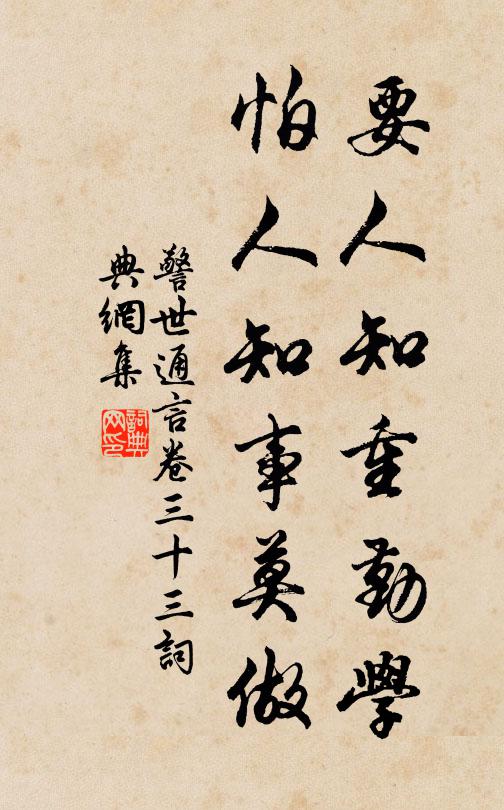 要人知重勤學
怕人知事莫做
警世通言卷三十三詞
典網集
詞典網印